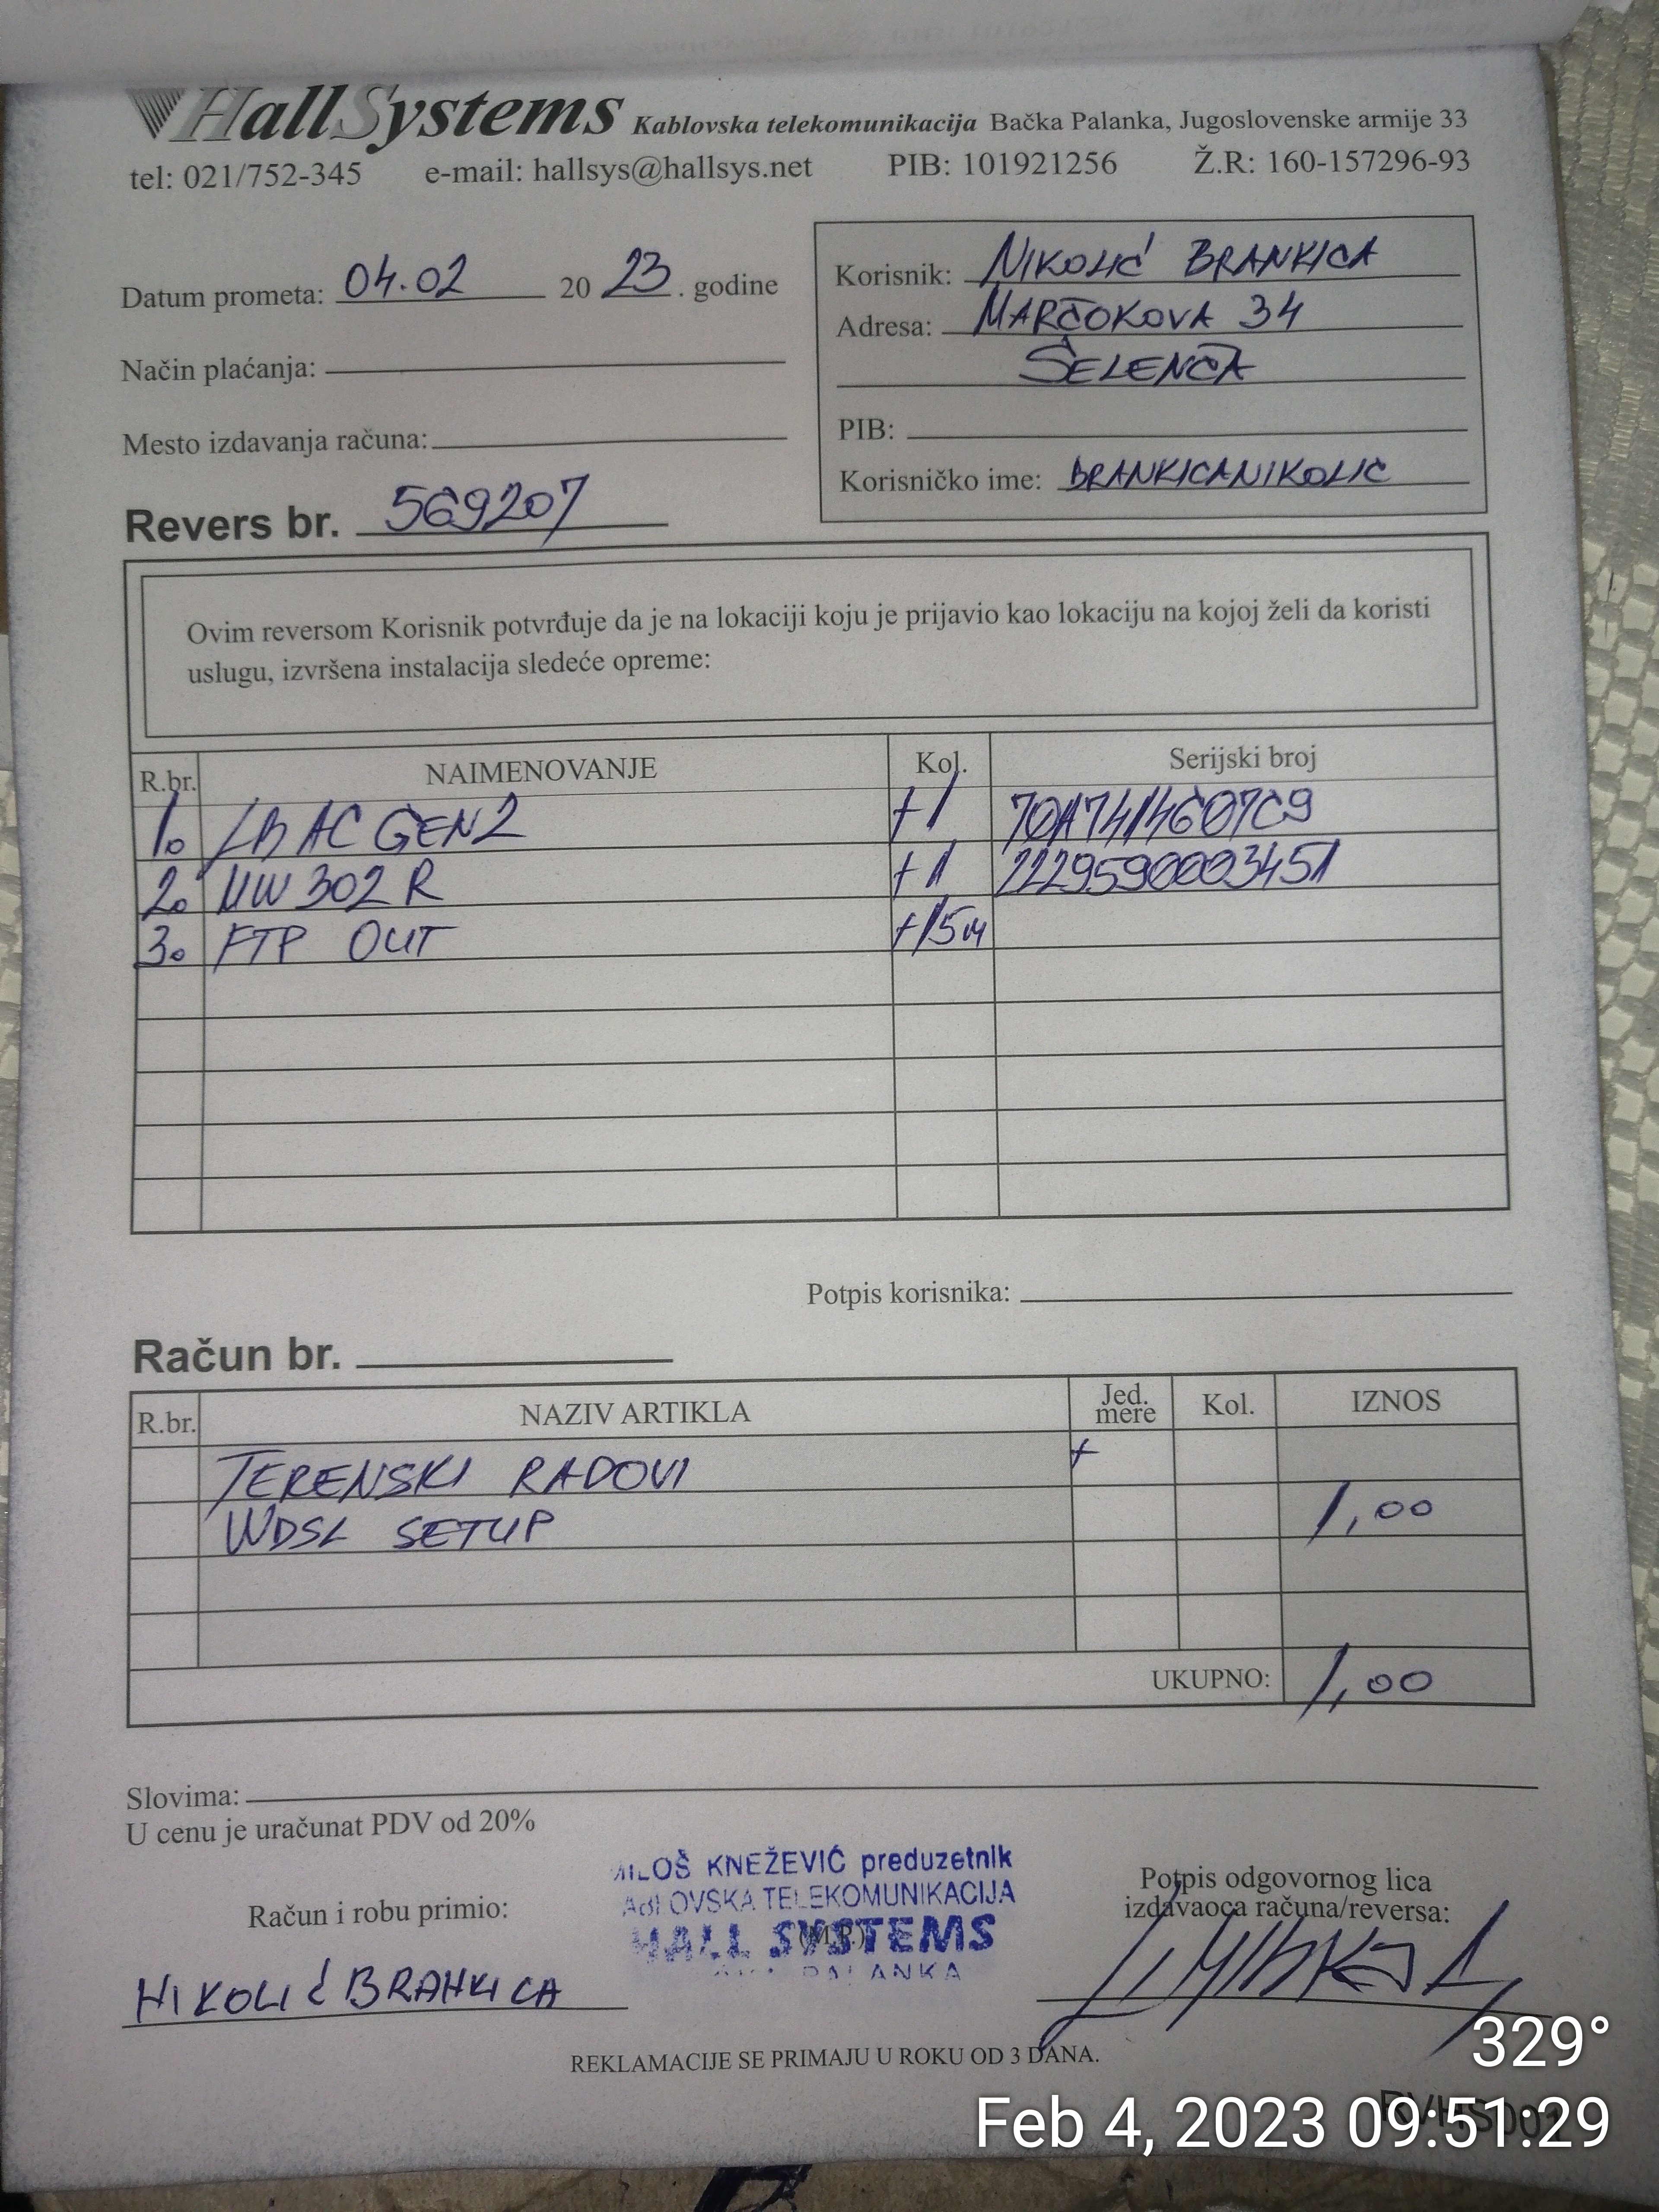 HallSystems Kablovska telekomunikacija Bačka Palanka, Jugoslovenske armije 33
tel: 021/752-345 e-mail: hallsys@hallsys.net PIB: 101921256 Ž.R: 160-157296-93
Datum prometa: 04.02 20 23. godine
Način plaćanja:
Mesto izdavanja računa:
Revers br. 569207
Korisnik: NIKOLIĆ BRANKICA
Adresa: MARČOKOVA 34
ŠELENČA
PIB:
Korisničko ime: BRANKICANIKOLIC
Ovim reversom Korisnik potvrđuje da je na lokaciji koju je prijavio kao lokaciju na kojoj želi da koristi
uslugu, izvršena instalacija sledeće opreme:
R.br. NAIMENOVANJE Kol. Serijski broj
1. LB AC GEN2 +1
2. MW 302 R +1 2229590003451
3. FTP OUT +15m
Potpis korisnika:
Račun br.
R.br. NAZIV ARTIKLA Jed. mere Kol. IZNOS
TERENSKI RADOVI +
WDSL SETUP 1,00
UKUPNO: 1,00
Slovima:
U cenu je uračunat PDV od 20%
MILOŠ KNEŽEVIĆ preduzetnik
TELEKOMUNIKACIJA
HALL SYSTEMS
PALANKA
(M.P.)
Račun i robu primio:
NIKOLIĆ BRANKICA
Potpis odgovornog lica
izdavaoca računa/reversa:
REKLAMACIJE SE PRIMAJU U ROKU OD 3 DANA.
329°
Feb 4, 2023 09:51:29